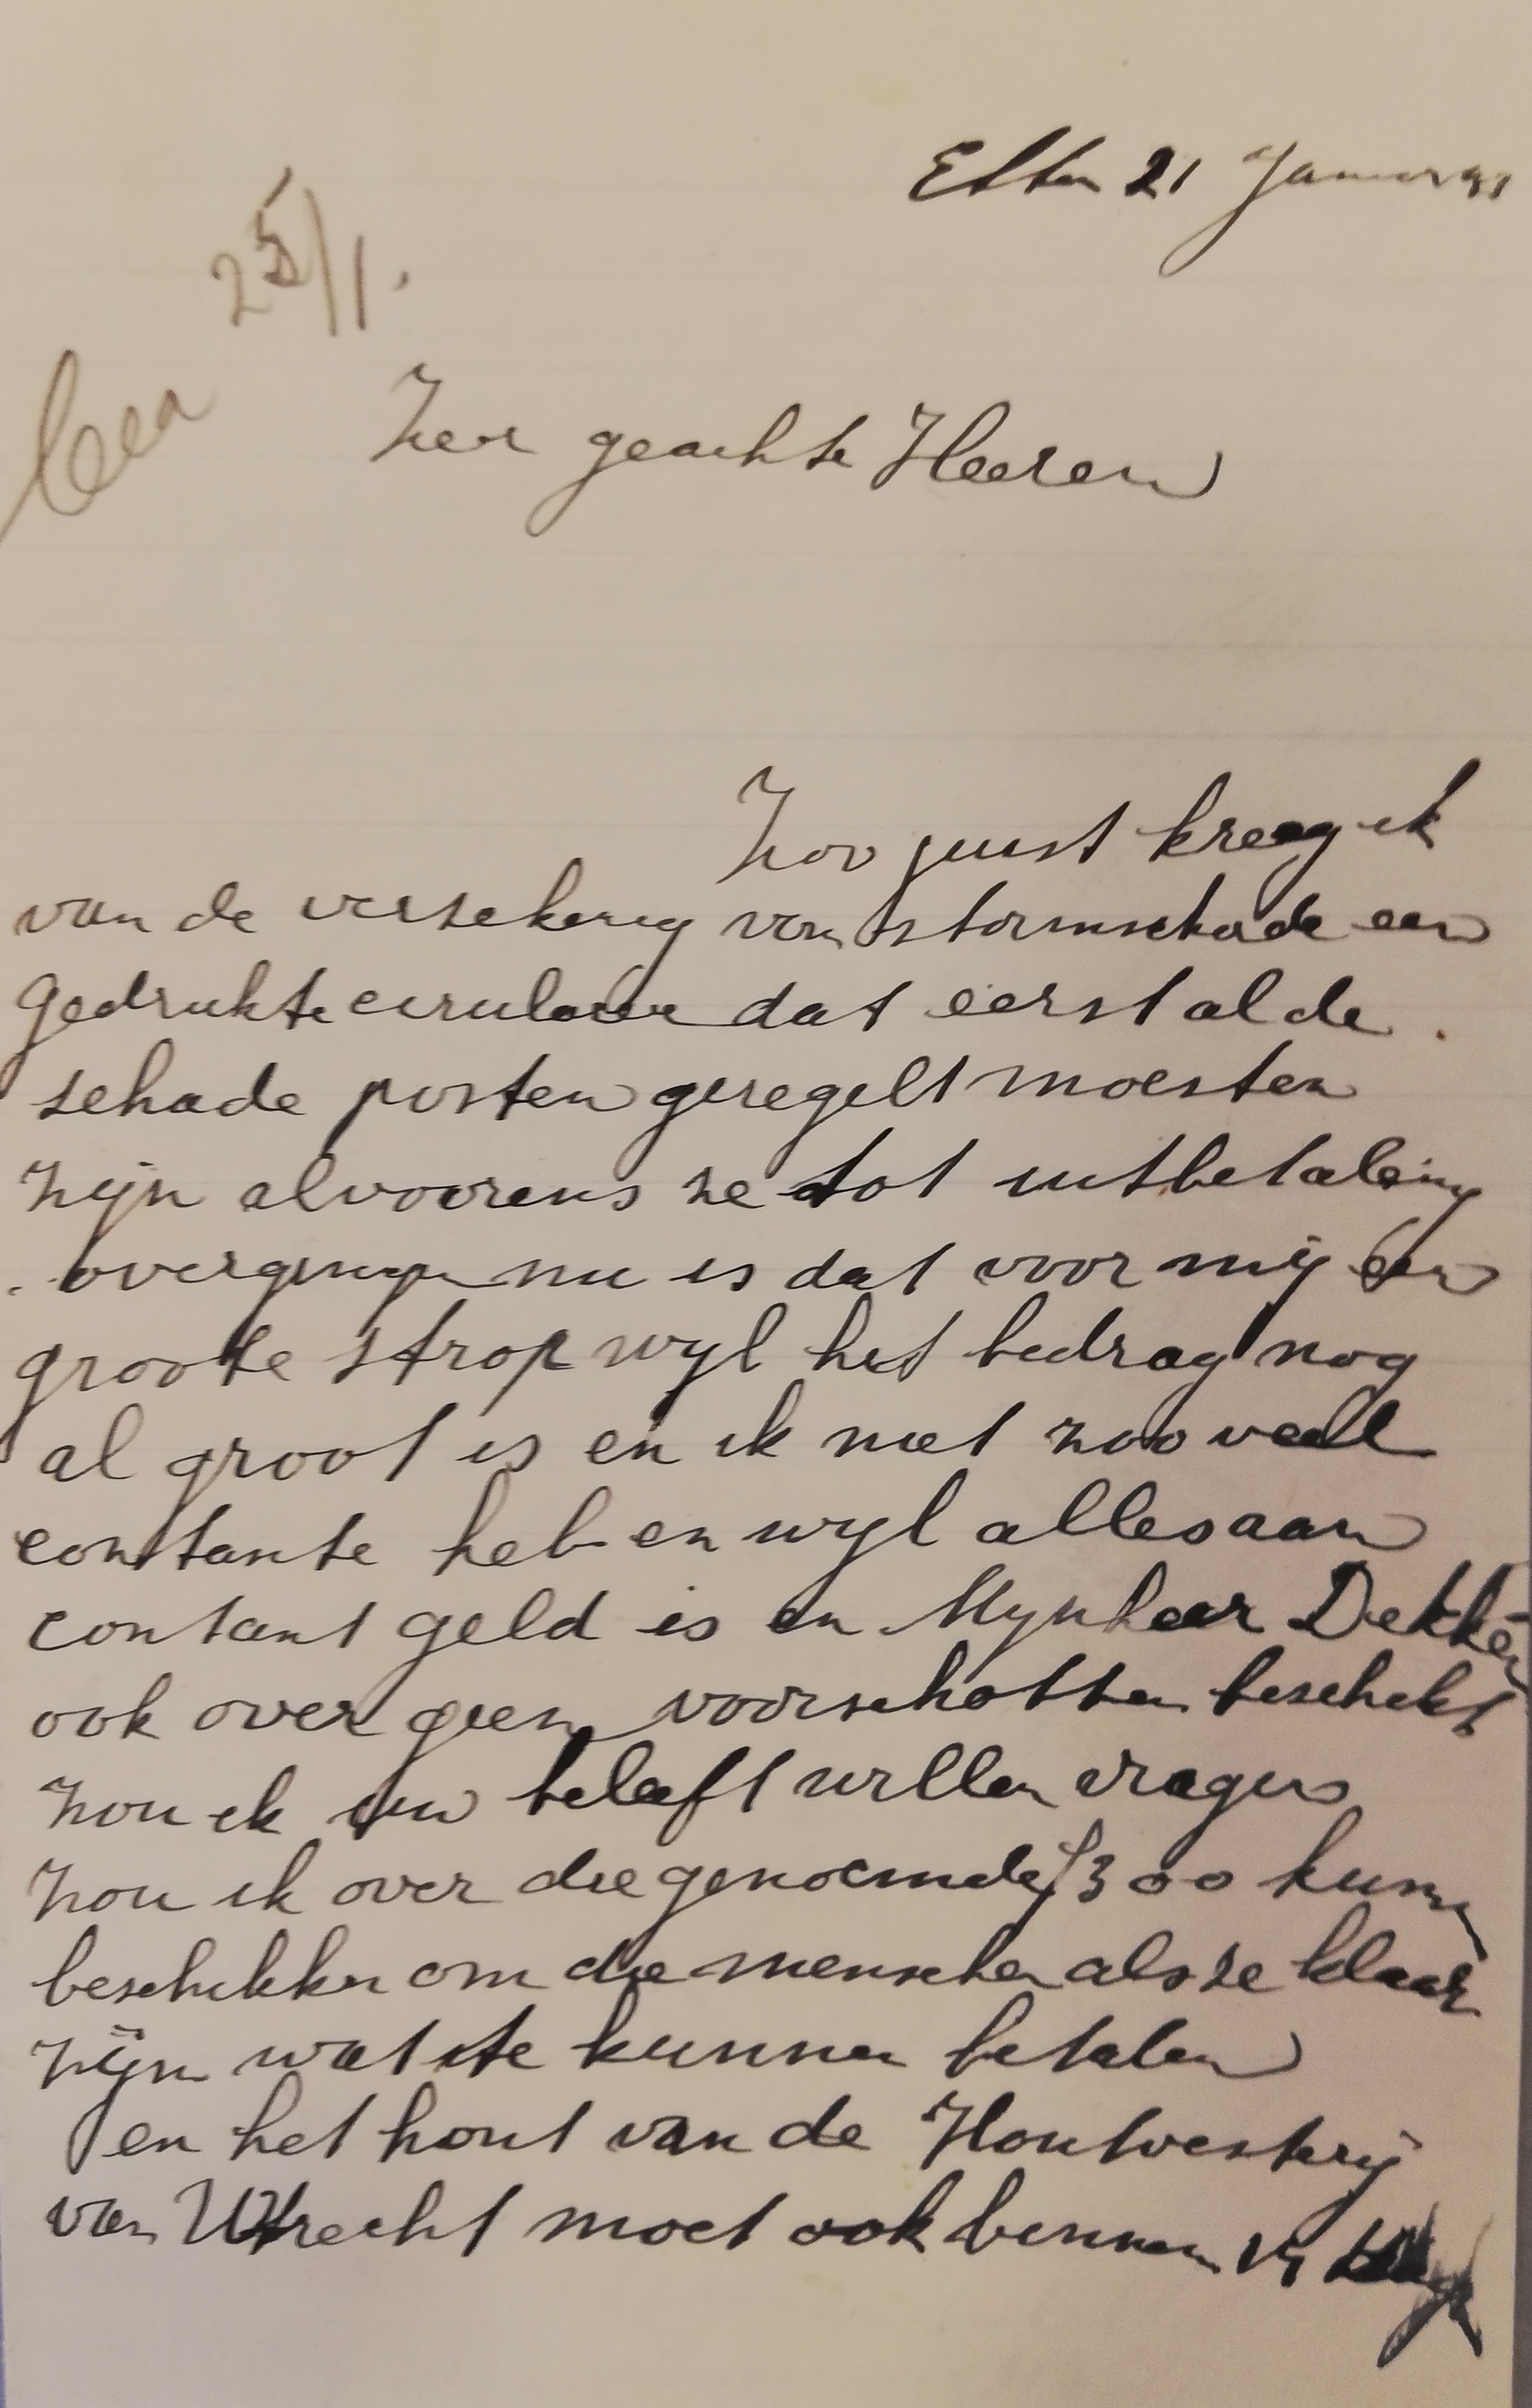 Etten 21 Januari 41
25/1.
Zeer geachte Heeren
Zoo juist kreeg ik
van de versekering van stormschade een
gedrukte cirulaire dat eerst al de
schade posten geregelt moesten
zijn alvoorens ze tot uitbetaling
overgingen nu is dat voor mij een
groote strop wijl het bedrag nog
al groot is en ik niet zoo veel
contante heb en wijl alles aan
contant geld is en Mynheer Dekker
ook over geen voorschotten beschikt
zou ik uw beleeft willen vragen
zou ik over die genoemde f 300 kunnen
beschikken om die menschen als ze klaar
zijn wat te kunnen betalen
en het hout van de Houtvesterij
van Utrecht moet ook binnen 14 dagen